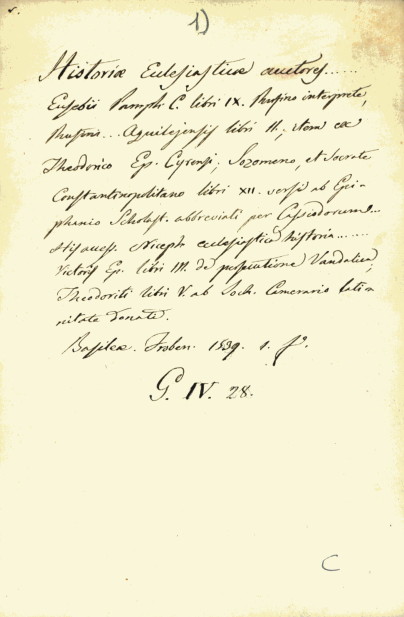 1)
Historiæ Eclesiasticæ auctores......
Eusebii Pamph. C. libri IX. Rufino interprete,
Rufini... Aquilejensis libri II., item ex
Theodorico Ep. Cyrensi, Sozomeno, et Socrate
Constantinopolitano libri XII. versi ab Epi-
phanio Scholast. abbreviati per Cassiodorum...
His access. Niceph ecclesiastica historia......
Victoris Ep. libri III. de persecutione Vandalica,
Theodoriti libri V. ab Joch. Camerario lati-
nitate donate.
Basileæ. Froben. 1539. 1. fº.
G. IV. 28.
C